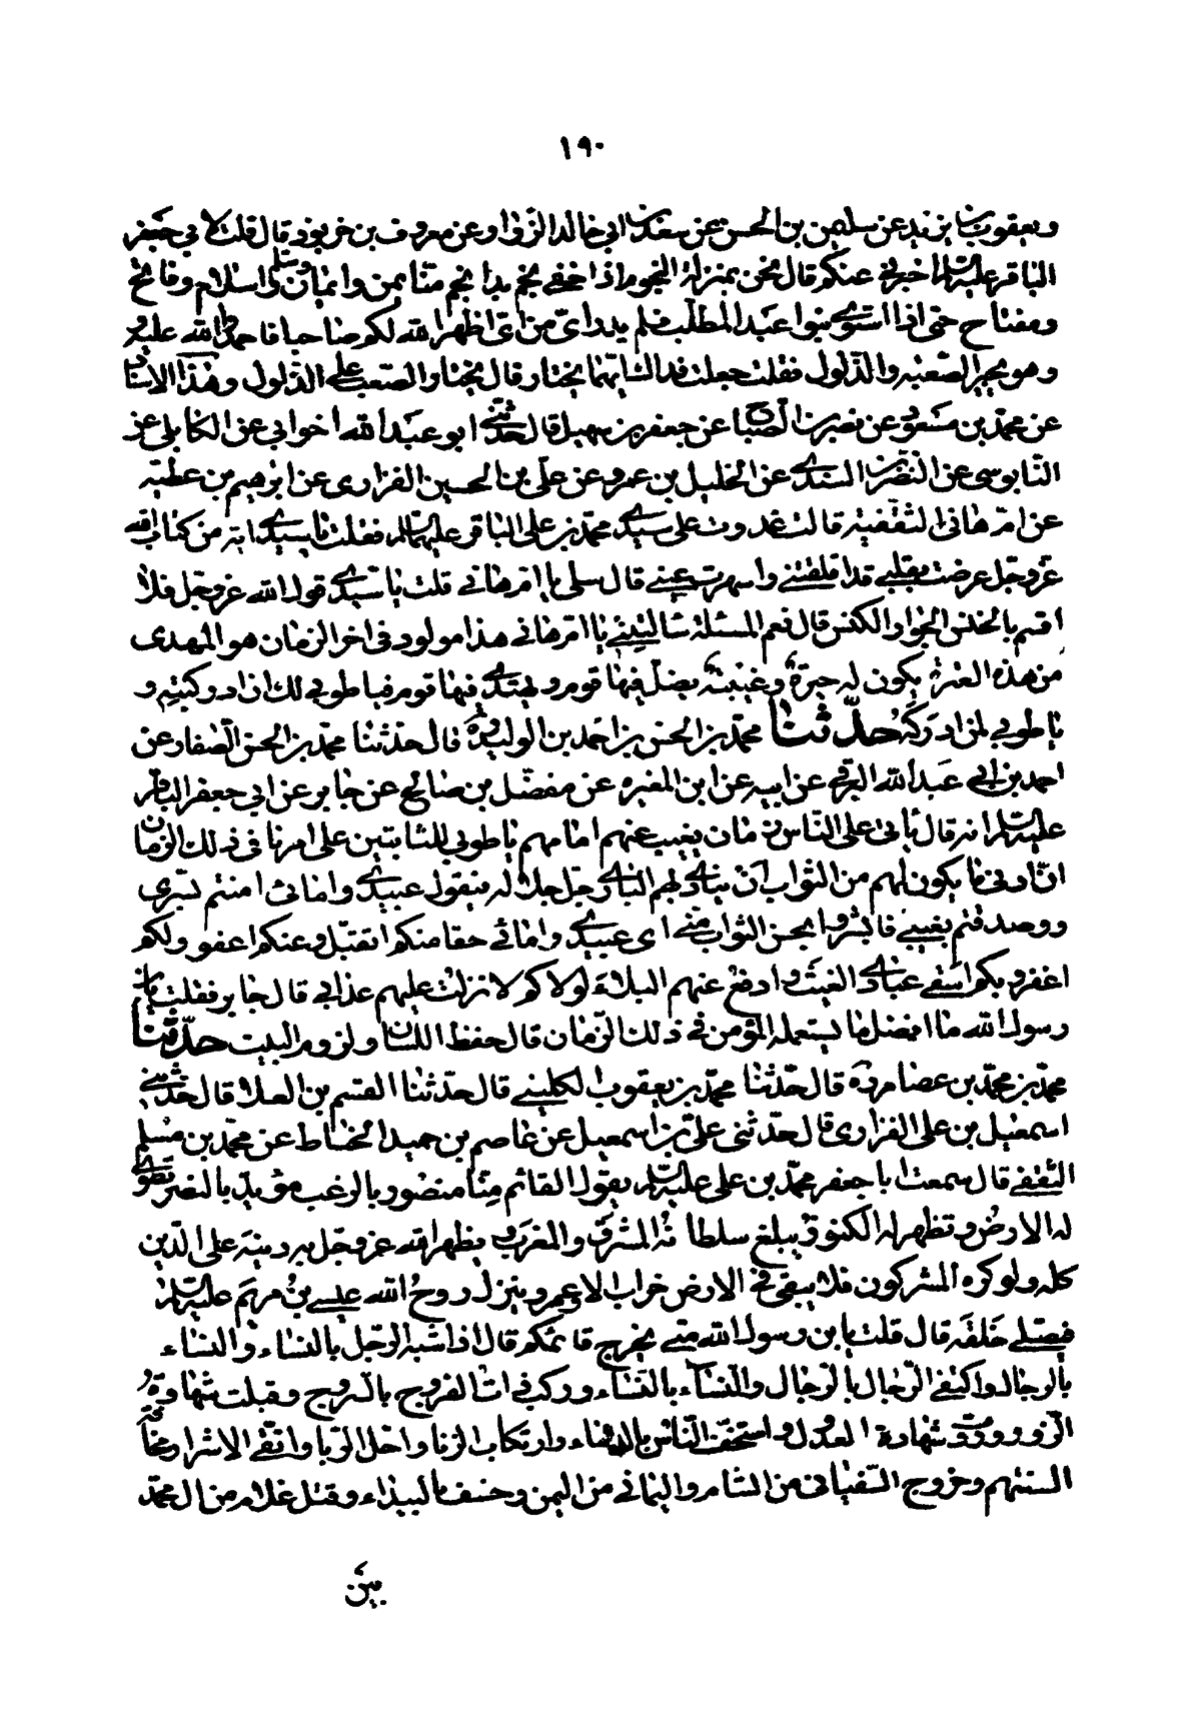 ١٩٠
ويعقوب بن يزيد عن سليمن بن الحسن عن سعد بن ابي خالد الزوا وعن معروف بن خربوذ قال قلت لابي جعفر
الباقر عليه السلام اخبرني عنكم قال نحن بمنزلة النجوم اذا خفي نجم بدا نجم منا امن وامان وسلم واسلام وفاتح
ومفتاح حتى اذا استوى بنوا عبد المطلب فلم يدر اي من اي اظهر الله لكم صاحبكم فاحمدوا الله عليه
وهو يخير الصعبة والذلول فقلت جعلت فداك ايهما يختار قال يختار الصعب على الذلول وبهذا الاسناد
عن محمد بن مسعود عن نصر بن الصباح عن جعفر بن سهيل قال حدثني ابو عبد الله اخو ابي عن الكابلي عن
القابوسي عن النضر بن السندي عن الخليل بن عمرو عن علي بن الحسين الفزاري عن ابرهيم بن عطية
عن ام هاني الثقفية قالت غدوت على سيدي محمد بن علي الباقر عليهما السلام فقلت يا سيدي اية من كتاب الله
عز وجل عرضت بقلبي قد اقلقتني واسهرت عيني قال سلي يا ام هاني قلت يا سيدي قول الله عز وجل فلا
اقسم بالخنس الجوار الكنس قال نعم المسئلة سالتيني يا ام هاني هذا مولود في اخر الزمان هو المهدي
من هذه العترة يكون له حيرة وغيبة يضل فيها قوم ويهتدي فيها قوم فيا طوبى لك ان ادركتيه و
يا طوبى لمن ادركه حدثنا محمد بن الحسن بن احمد بن الوليد ره قال حدثنا محمد بن الحسن الصفار عن
احمد بن ابي عبد الله البرقي عن ابيه عن ابن المغيره عن مفضل بن صالح عن جابر عن ابي جعفر الباقر
عليه السلام انه قال ياتي على الناس زمان يغيب عنهم امامهم يا طوبى للثابتين على امرنا في ذلك الزمان
ان ادنى ما يكون لهم من الثواب ان يناديهم الباري جل جلاله فيقول عبيدي وامائي امنتم بسري
وصدقتم بغيبي فابشروا بحسن الثواب مني اي عبيدي وامائي حقا منكم اتقبل وعنكم اعفو ولكم
اغفر وبكم اسقي عبادي الغيث وادفع عنهم البلاء لولاكم لانزلت عليهم عذابي قال جابر فقلت يابن
رسول الله ما افضل ما يستعمله المؤمن في ذلك الزمان قال حفظ اللسان ولزوم البيت حدثنا
محمد بن محمد بن عصام ره قال حدثنا محمد بن يعقوب الكليني قال حدثنا القسم بن العلا قال حدثني
اسمعيل بن علي الفزاري قال حدثني علي بن اسمعيل عن عاصم بن حميد الحناط عن محمد بن مسلم
الثقفي قال سمعت ابا جعفر محمد بن علي عليه السلام يقول القائم منا منصور بالرعب مؤيد بالنصر تطوى
له الارض وتظهر له الكنوز يبلغ سلطانه المشرق والمغرب ويظهر الله عز وجل به دينه على الدين
كله ولو كره المشركون فلا يبقى في الارض خراب الا وعمر وينزل روح الله عيسى بن مريم عليه السلام
فيصلي خلفه قال قلت يابن رسول الله متى يخرج قائمكم قال اذا تشبه الرجل بالنساء والنساء
بالرجال واكتفى الرجال بالرجال والنساء بالنساء وركب ذات الفروج بالسروج وقبلت شهادة
الزور وردت شهادة العدل واستخف الناس بالدماء وارتكاب الزنا واكل الربا واتقى الاشرار مخافة
السنتهم وخروج السفياني من الشام واليماني من اليمن وخسف بالبيداء وقتل غلام من ال محمد
بين